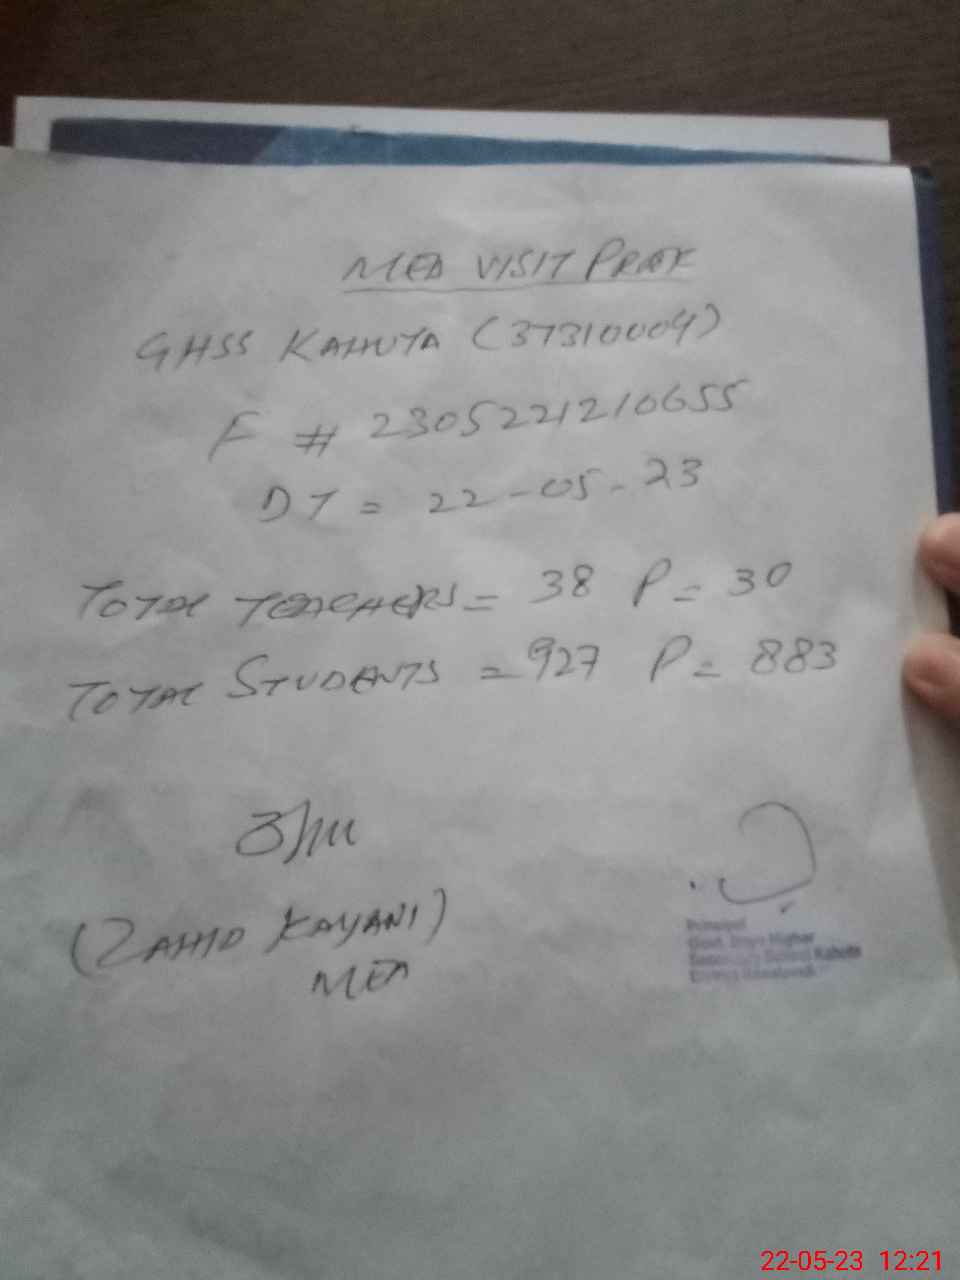 MEA VISIT PROOF
GHSS KAHUTA (37310004)
F # 2305221210655
DT = 22-05-23
TOTAL TEACHERS = 38 P = 30
TOTAL STUDENTS = 927 P = 883
(ZAHID KAYANI)
MEA
Principal
Govt. Boys Higher
Secondary School Kahuta
22-05-23 12:21